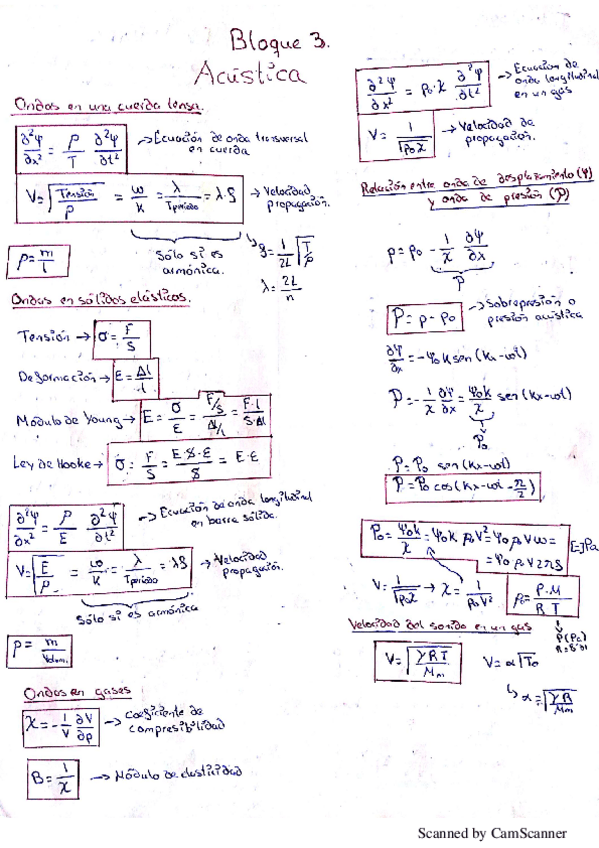 Bloque 3.
Acústica
Ondas en una cuerda tensa.
∂²Ψ/∂x² = ρ/T ∂²Ψ/∂t² → Ecuación de onda transversal
en cuerda
V = √(Tensión/ρ) = ω/k = λ/Tperiodo = λ·f → Velocidad
propagación.
Sólo si es
armónica.
f = 1/2L √(T/ρ)
λ = 2L/n
ρ = m/l
Ondas en sólidos elásticos.
Tensión → σ = F/S
Deformación → ε = Δl/l
Módulo de Young → E = σ/ε = (F/S)/(Δl/l) = F·l/S·Δl
Ley de Hooke → σ = F/S = E·S·ε/S = E·ε
∂²Ψ/∂x² = ρ/E ∂²Ψ/∂t² → Ecuación de onda longitudinal
en barra sólida.
V = √(E/ρ) = ω/k = λ/Tperiodo = λf → Velocidad
propagación.
Sólo si es armónica
ρ = m/Volum.
Ondas en gases
χ = -1/V ∂V/∂p → Coeficiente de
compresibilidad
B = 1/χ → Módulo de elasticidad
∂²Ψ/∂x² = ρ₀·χ ∂²Ψ/∂t² → Ecuación de
onda longitudinal
en un gas
V = 1/√(ρ₀χ) → Velocidad de
propagación.
Relación entre onda de desplazamiento (Ψ)
y onda de presión (P)
p = p₀ - 1/χ ∂Ψ/∂x
P
P = p - p₀ → Sobrepresión o
presión acústica
∂Ψ/∂x = -Ψ₀ k sen (kx-ωt)
P = -1/χ ∂Ψ/∂x = Ψ₀k/χ sen (kx-ωt)
P₀
P = P₀ sen (kx-ωt)
P = P₀ cos (kx-ωt - π/2)
P₀ = Ψ₀k/χ = Ψ₀k ρ₀V² = Ψ₀ρ₀Vω =
= Ψ₀ρ₀V2πf
[=] Pa
V = 1/√(ρ₀χ) → χ = 1/ρ₀V²
ρ₀ = P·M/R T
P (Pa)
Velocidad del sonido en un gas
V = √(γRT/Mm)
V = α√T₀
α = √(γR/Mm)
Scanned by CamScanner